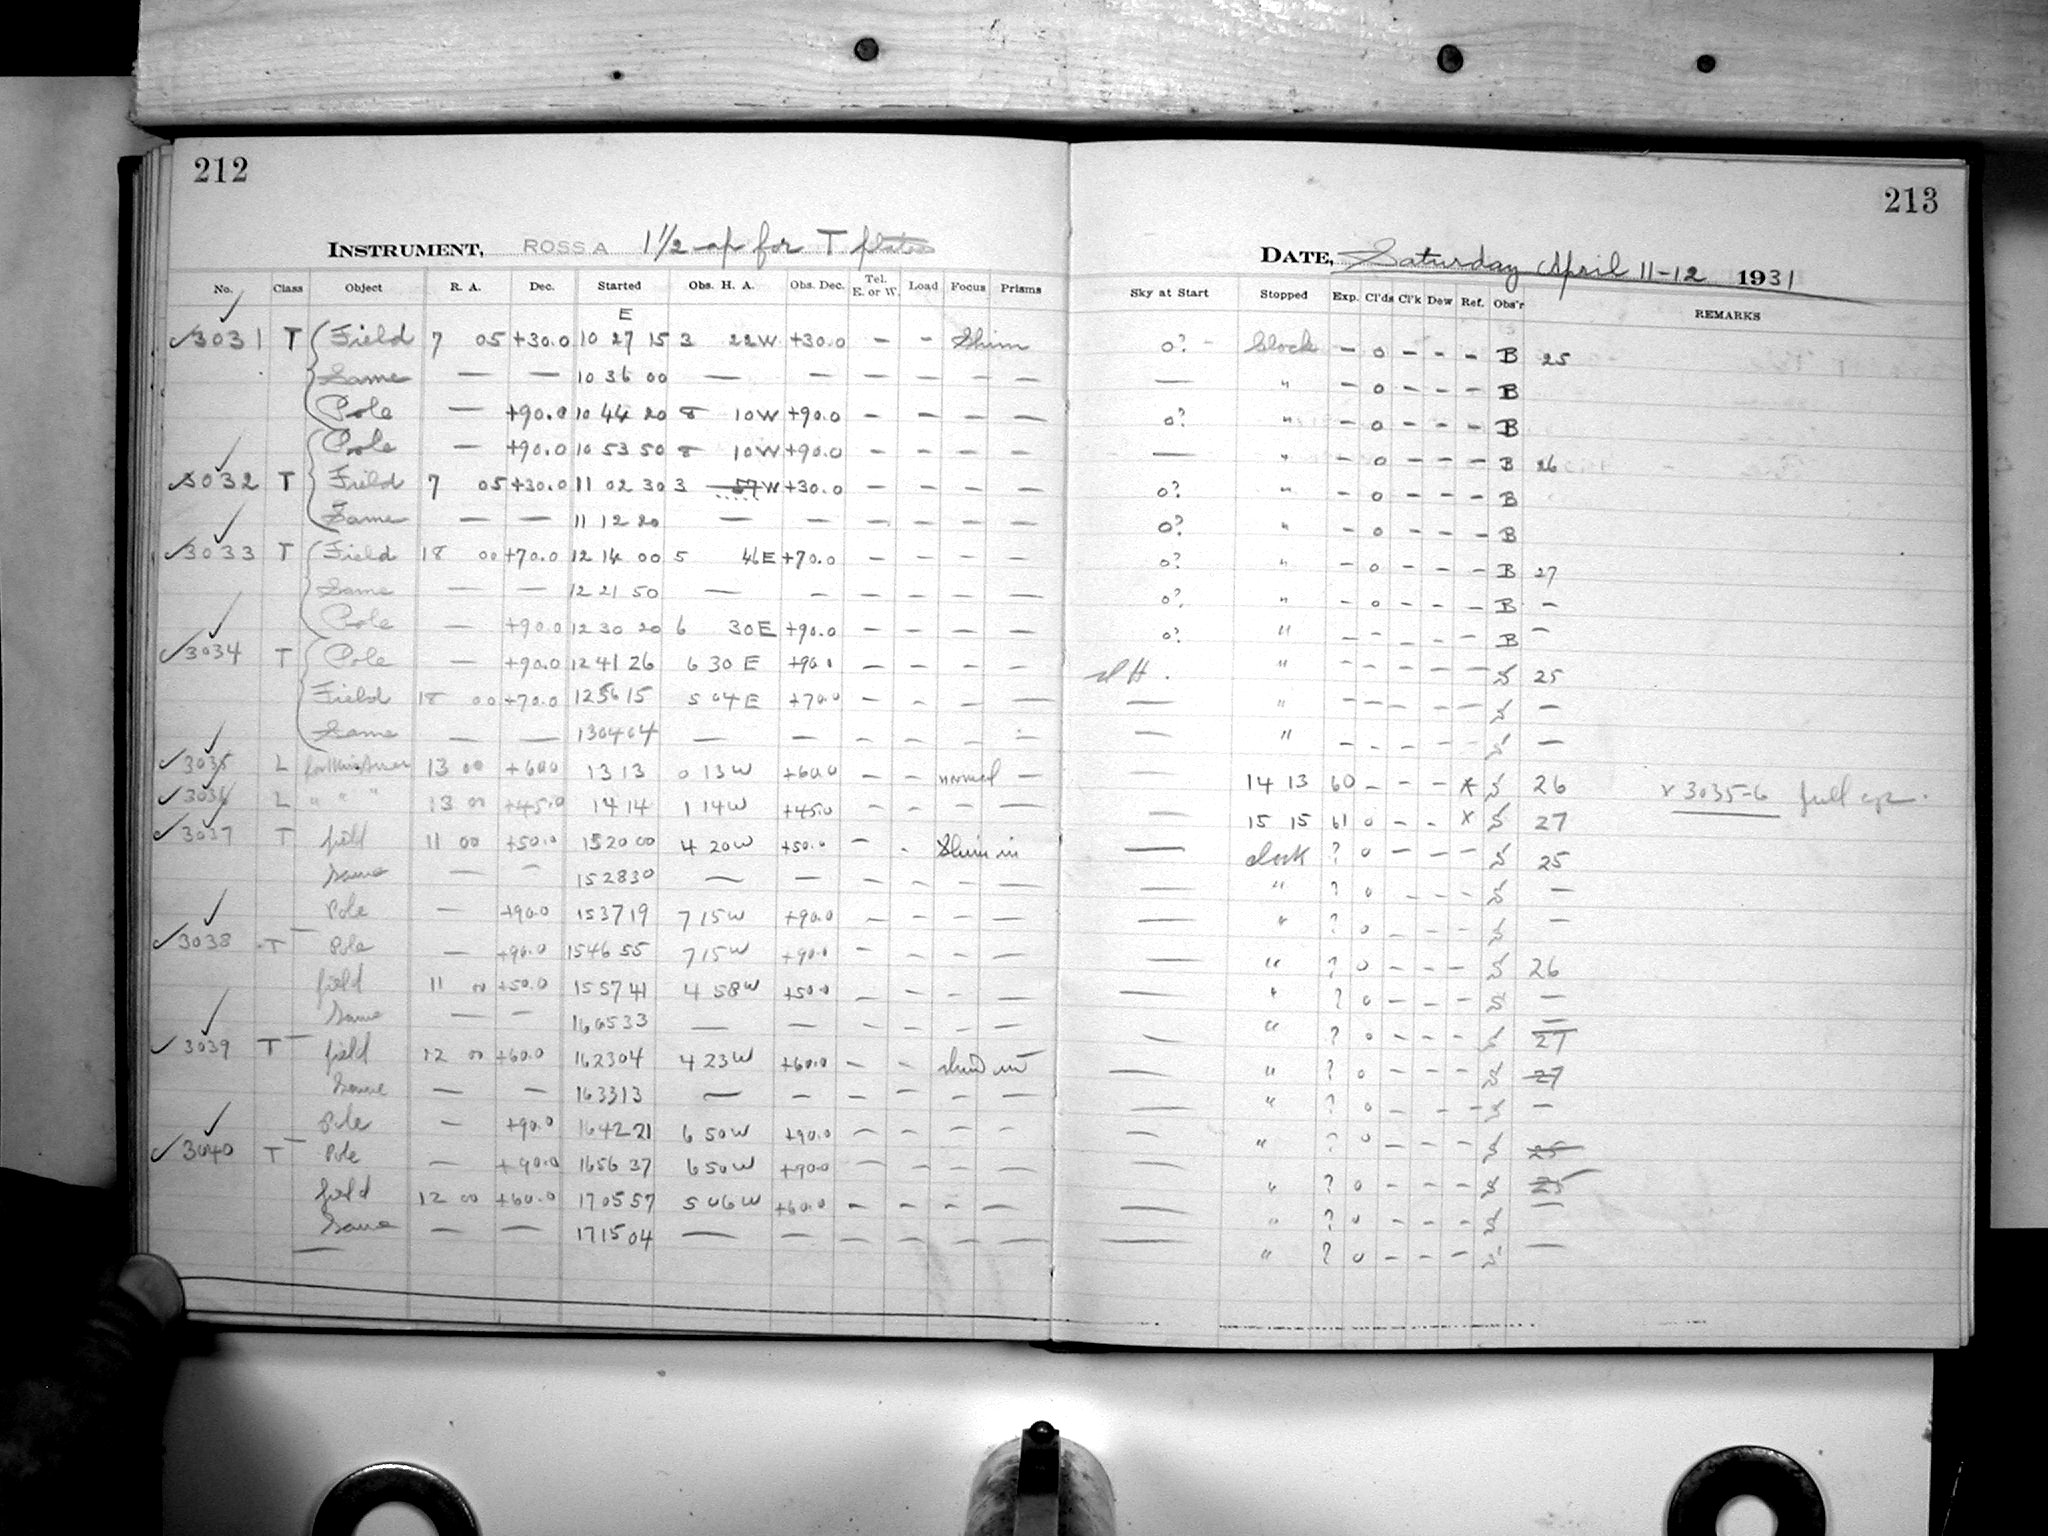 212
INSTRUMENT, ROSS A 1 1/2 ap for T plates
No. Class Object R. A. Dec. Started Obs. H. A. Obs. Dec. Tel. E. or W. Load Focus Prisms
E
3031 T Field 7 05 +30.0 10 27 15 3 22W +30.0 - - Shim
Same — — 10 36 00 — — - - - -
Pole — +90.0 10 44 20 8 10W +90.0 - - - -
Pole — +90.0 10 53 50 8 10W +90.0 - - - -
3032 T Field 7 05 +30.0 11 02 30 3 57W +30.0 - - - -
Same — — 11 12 20 — — - - - -
3033 T Field 18 00 +70.0 12 14 00 5 46E +70.0 - - - -
Same — — 12 21 50 — - - - - -
Pole — +90.0 12 30 20 6 30E +90.0 - - - -
3034 T Pole — +90.0 12 41 26 6 30 E +90.0 - - - -
Field 18 00 +70.0 12 56 15 5 04 E +70.0 - - - -
Same — — 13 04 04 — — - - - -
3035 L 13 00 +60.0 13 13 0 13W +60.0 - - normal -
3036 L " " " 13 00 +45.0 14 14 1 14W +45.0 - - - -
3037 T field 11 00 +50.0 15 20 00 4 20W +50.0 - - Shim in
Same — - 15 28 30 — — - - - -
Pole — +90.0 15 37 19 7 15W +90.0 - - - -
3038 T Pole — +90.0 15 46 55 7 15W +90.0 -
field 11 00 +50.0 15 57 41 4 58W +50.0 - - - -
Same — - 16 05 33 — — - - - -
3039 T field 12 00 +60.0 16 23 04 4 23W +60.0 - - shim in
Same — — 16 33 13 — - - - - -
Pole — +90.0 16 42 21 6 50W +90.0 - - - -
3040 T Pole — +90.0 16 56 37 6 50W +90.0 - - - -
field 12 00 +60.0 17 05 57 5 06W +60.0 - - - -
Same — — 17 15 04 — — - - - -
213
DATE, Saturday April 11-12 1931
Sky at Start Stopped Exp. Cl'ds Cl'k Dew Ref. Obs'r REMARKS
0? - Clock - 0 - - - B 25
— " - 0 - - - B
0? " - 0 - - - B
— " - 0 - - - B 26
0? " - 0 - - - B
0? " - 0 - - - B
0? " - 0 - - - B 27
0? " - 0 - - - B -
0? " - - - - - B -
" - - - - - S 25
— " - - - - - S —
— " - - - - - S —
— 14 13 60 - - - x S 26 v 3035-6 full ap.
— 15 15 61 0 - - x S 27
— clock ? 0 - - - S 25
— " ? 0 - - - S —
— " ? 0 - - - S —
— " ? 0 - - - S 26
— " ? 0 - - - S —
" ? 0 - - - S 27
— " ? 0 - - - S 27
" ? 0 - - - S -
— " ? 0 - - S 25
— " ? 0 - - - S 25
— " ? 0 - - - S —
— " ? 0 - - - S —